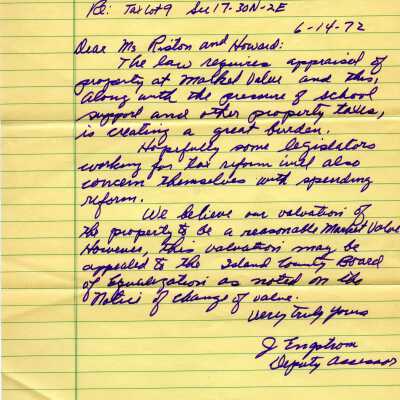 Re: Tax Lot 9 Sec 17-30N-2E
6-14-72
Dear Ms Riston and Howard:
The law requires appraisal of
property at Market Value and this,
along with the pressure of school
support and other property taxes,
is creating a great burden.
Hopefully some legislators
working for tax reform will also
concern themselves with spending
reform.
We believe our valuation of
the property to be a reasonable Market Value
However, this valuation may be
appealed to the Island County Board
of Equalization as noted on the
Notice of change of value.
Very truly yours
J Engstrom
Deputy Assessor